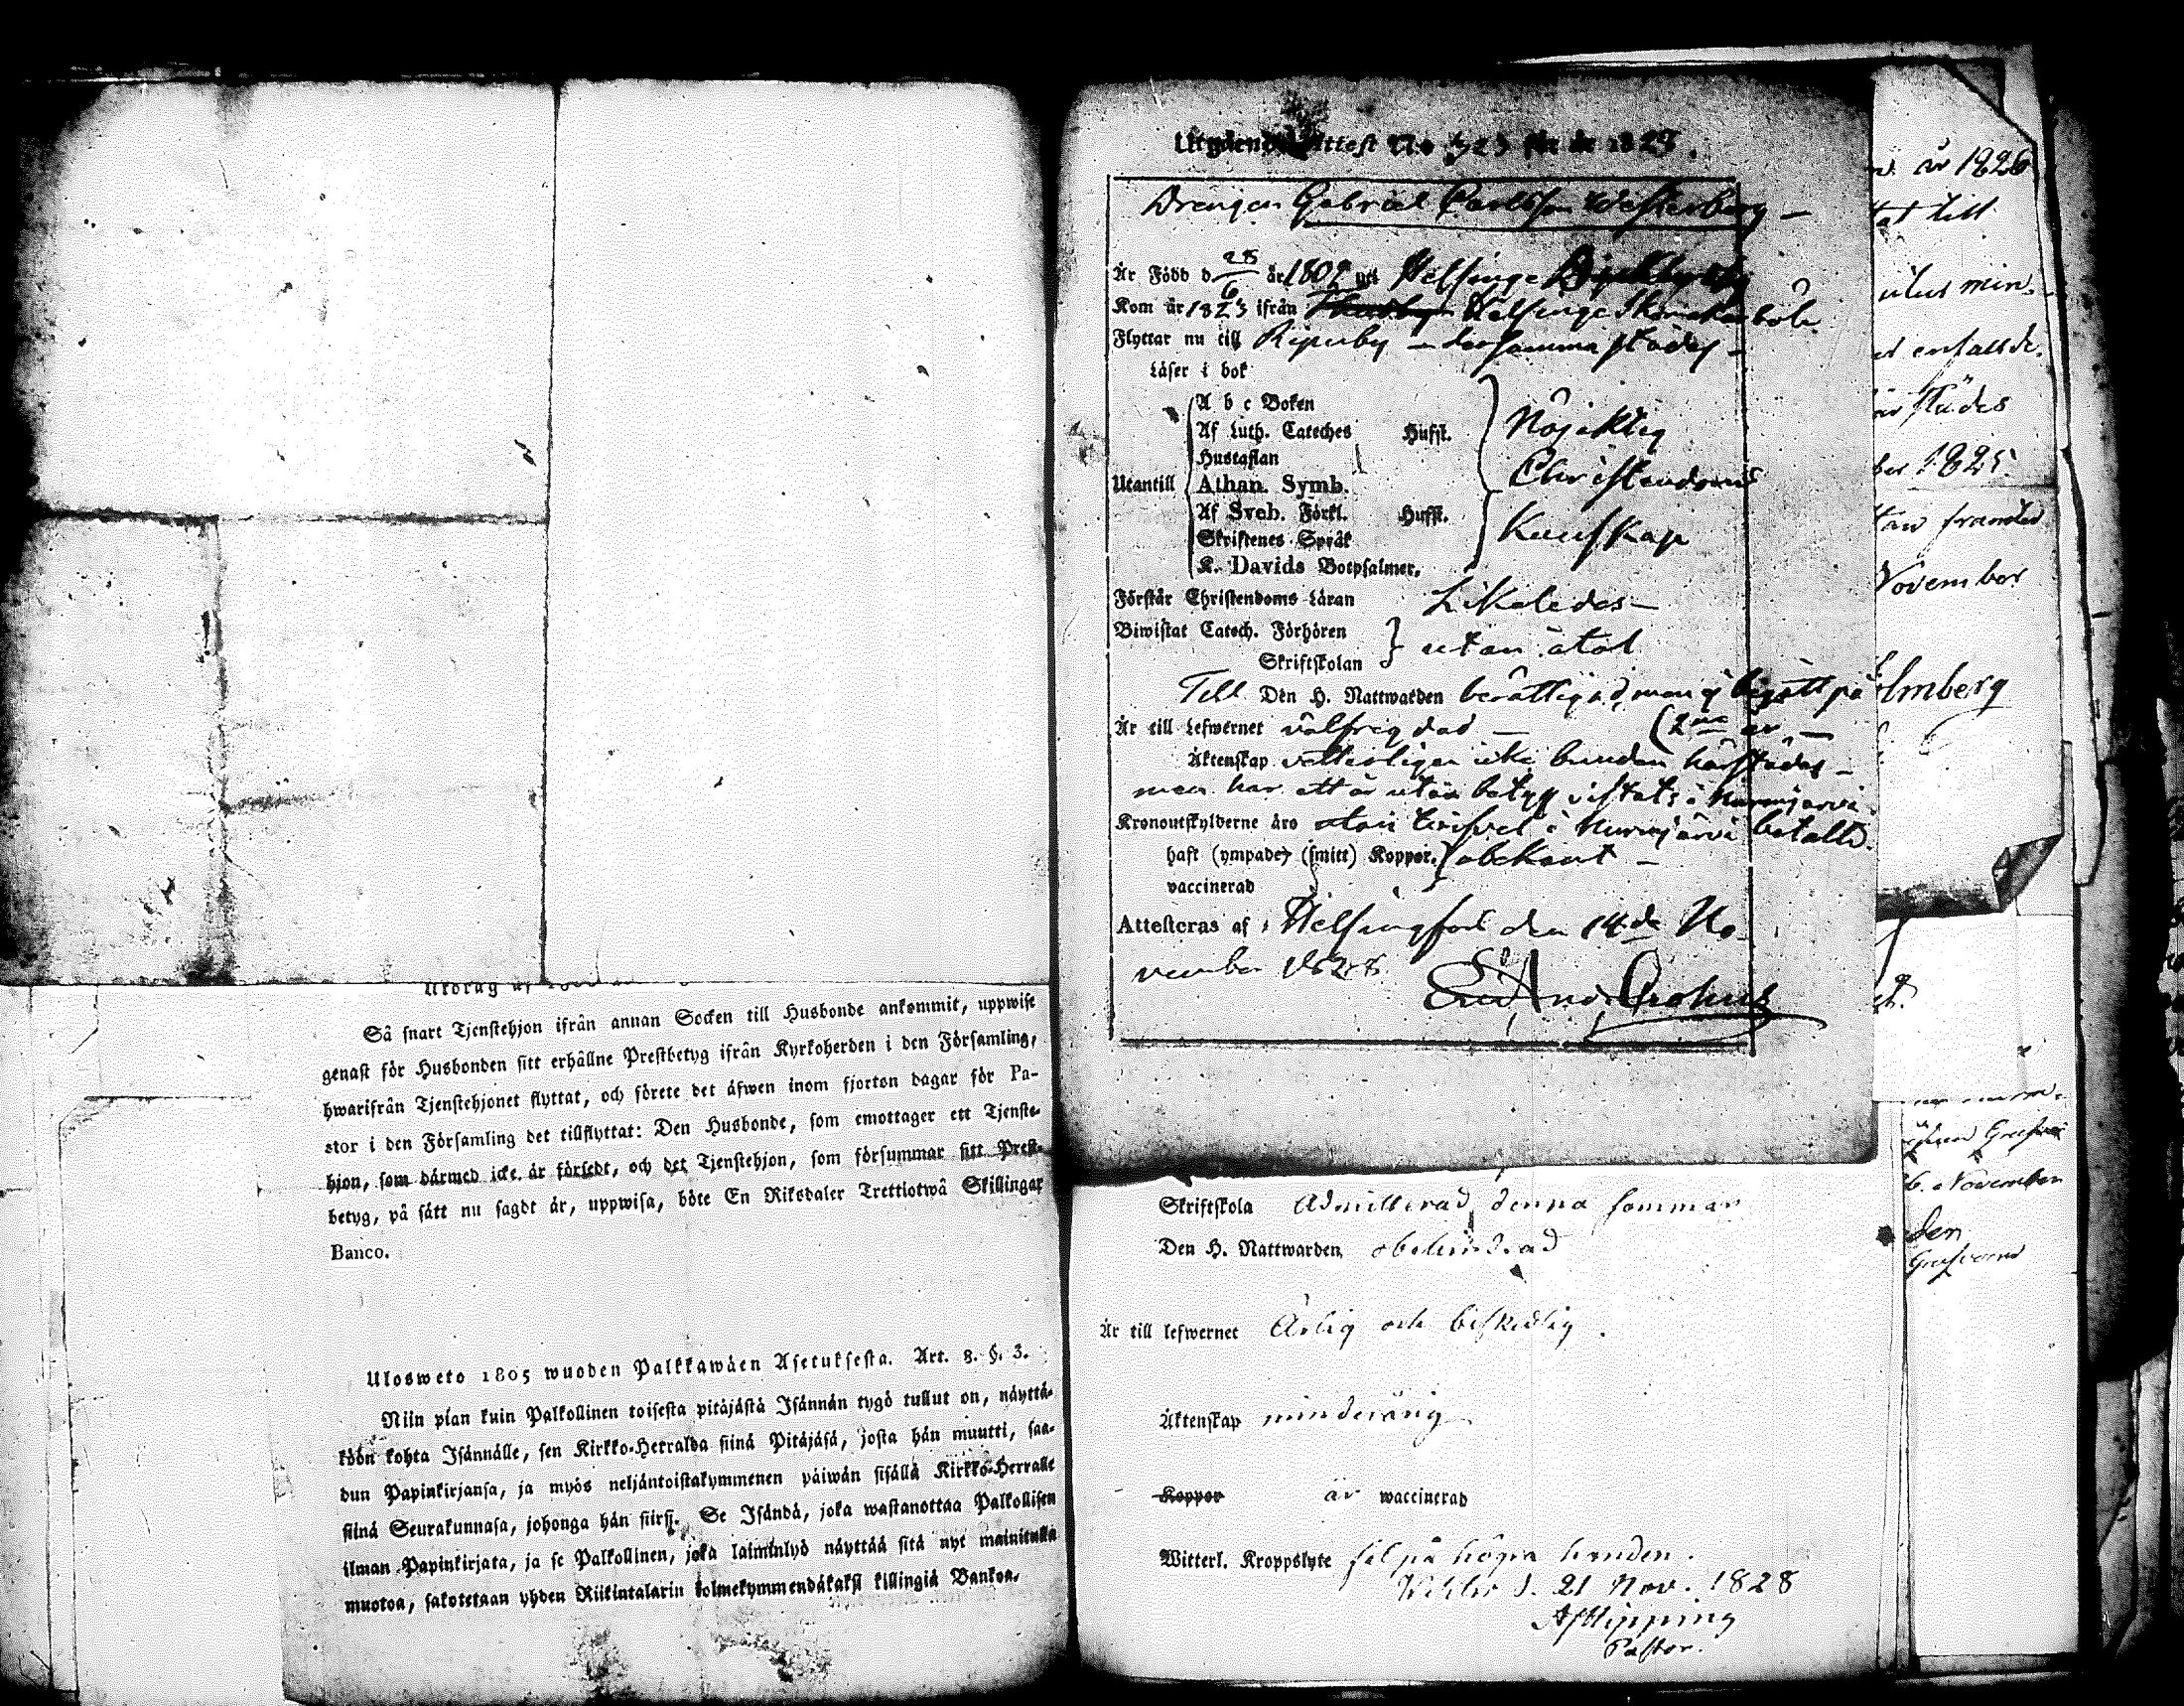 Utdrag af
Så snart Tjenstehjon ifrån annan Socken till Husbonde ankommit, uppwise
genast för Husbonden sitt erhållne Prestbetyg ifrån Kyrkoherden i den Församling,
hwarifrån Tjenstehjonet flyttat, och förete det äfwen inom fjorton dagar för Pa-
stor i den Församling det tillflyttat: Den Husbonde, som emottager ett Tjenste-
hjon, som därmed icke är försedt, och det Tjenstehjon, som försummar sitt Prest-
betyg, på sätt nu sagdt är, uppwisa, böte En Riksdaler Trettiotwå Skillingar
Banco.
Ulosweto 1805 wuoden Palkkawäen Asetuksesta. Art. 8. §. 3.
Niin pian kuin Palkollinen toisesta pitäjästä Isännän tygö tullut on, näyttä-
köön kohta Isännälle, sen Kirkko-Herralda siinä Pitäjäsä, josta hän muutti, saa-
dun Papinkirjansa, ja myös neljäntoistakymmenen päiwän sisällä Kirkko-Herralle
siinä Seurakunnasa, johonga hän siirsi. Se Isändä, joka wastanottaa Palkollisen
ilman Papinkirjata, ja se Palkollinen, joka laiminlyö näyttää sitä nyt mainitulla
muotoa, sakotetaan yhden Riikintalarin kolmekymmendäkaksi killingiä Bankoa.
Utgående Attest No 323 för år 1828.
Drengen Gabriel Carlsson Westerberg
Är Född d 28/6 år 1809 uti Helsinge
Kom år 1823 ifrån Helsinge Skomakarböle
Flyttar nu till Ripuby – dersammastädes –
Läser i bok
A b c Boken
Af Luth. Cateches Hufst.
Nöjaktig
Hustaflan
Christendoms
Utantill Athan. Symb.
Af Sveb. Förkl. Hufst.
Kunskap
Skriftenes Språk
K. Davids Botpsalmer.
Förstår Christendoms Läran Likaledes –
Biwistat Catech. Förhören
utan åtal
Skriftskolan
Till Den H. Nattwarden berättigad, men ej begått på
Är till Lefwernet välfrejdad – (2ne år –
Äktenskap vetterligen icke bunden härstädes –
men har ett år utan betyg vistats i Nurmijärvi
Kronoutskylderne äro utan tvifvel i Nurmijärvi betalte.
haft (ympade) (smitt) Koppor. obekant –
vaccinerad
Attesteras af, Helsingfors den 14de No-
vember 1828.
Eric And. Crohns
Skriftskola Admitterad denna sommar
Den H. Nattwarden obehindrad
Är till lefwernet Ärlig och beskedlig.
Äktenskap minderårig
Koppor är waccinerad
Witterl. Kroppslyte fel på högra handen.
d. 21 Nov. 1828
Pastor.
år 1826
till
städes
1825.
November
6. November
den